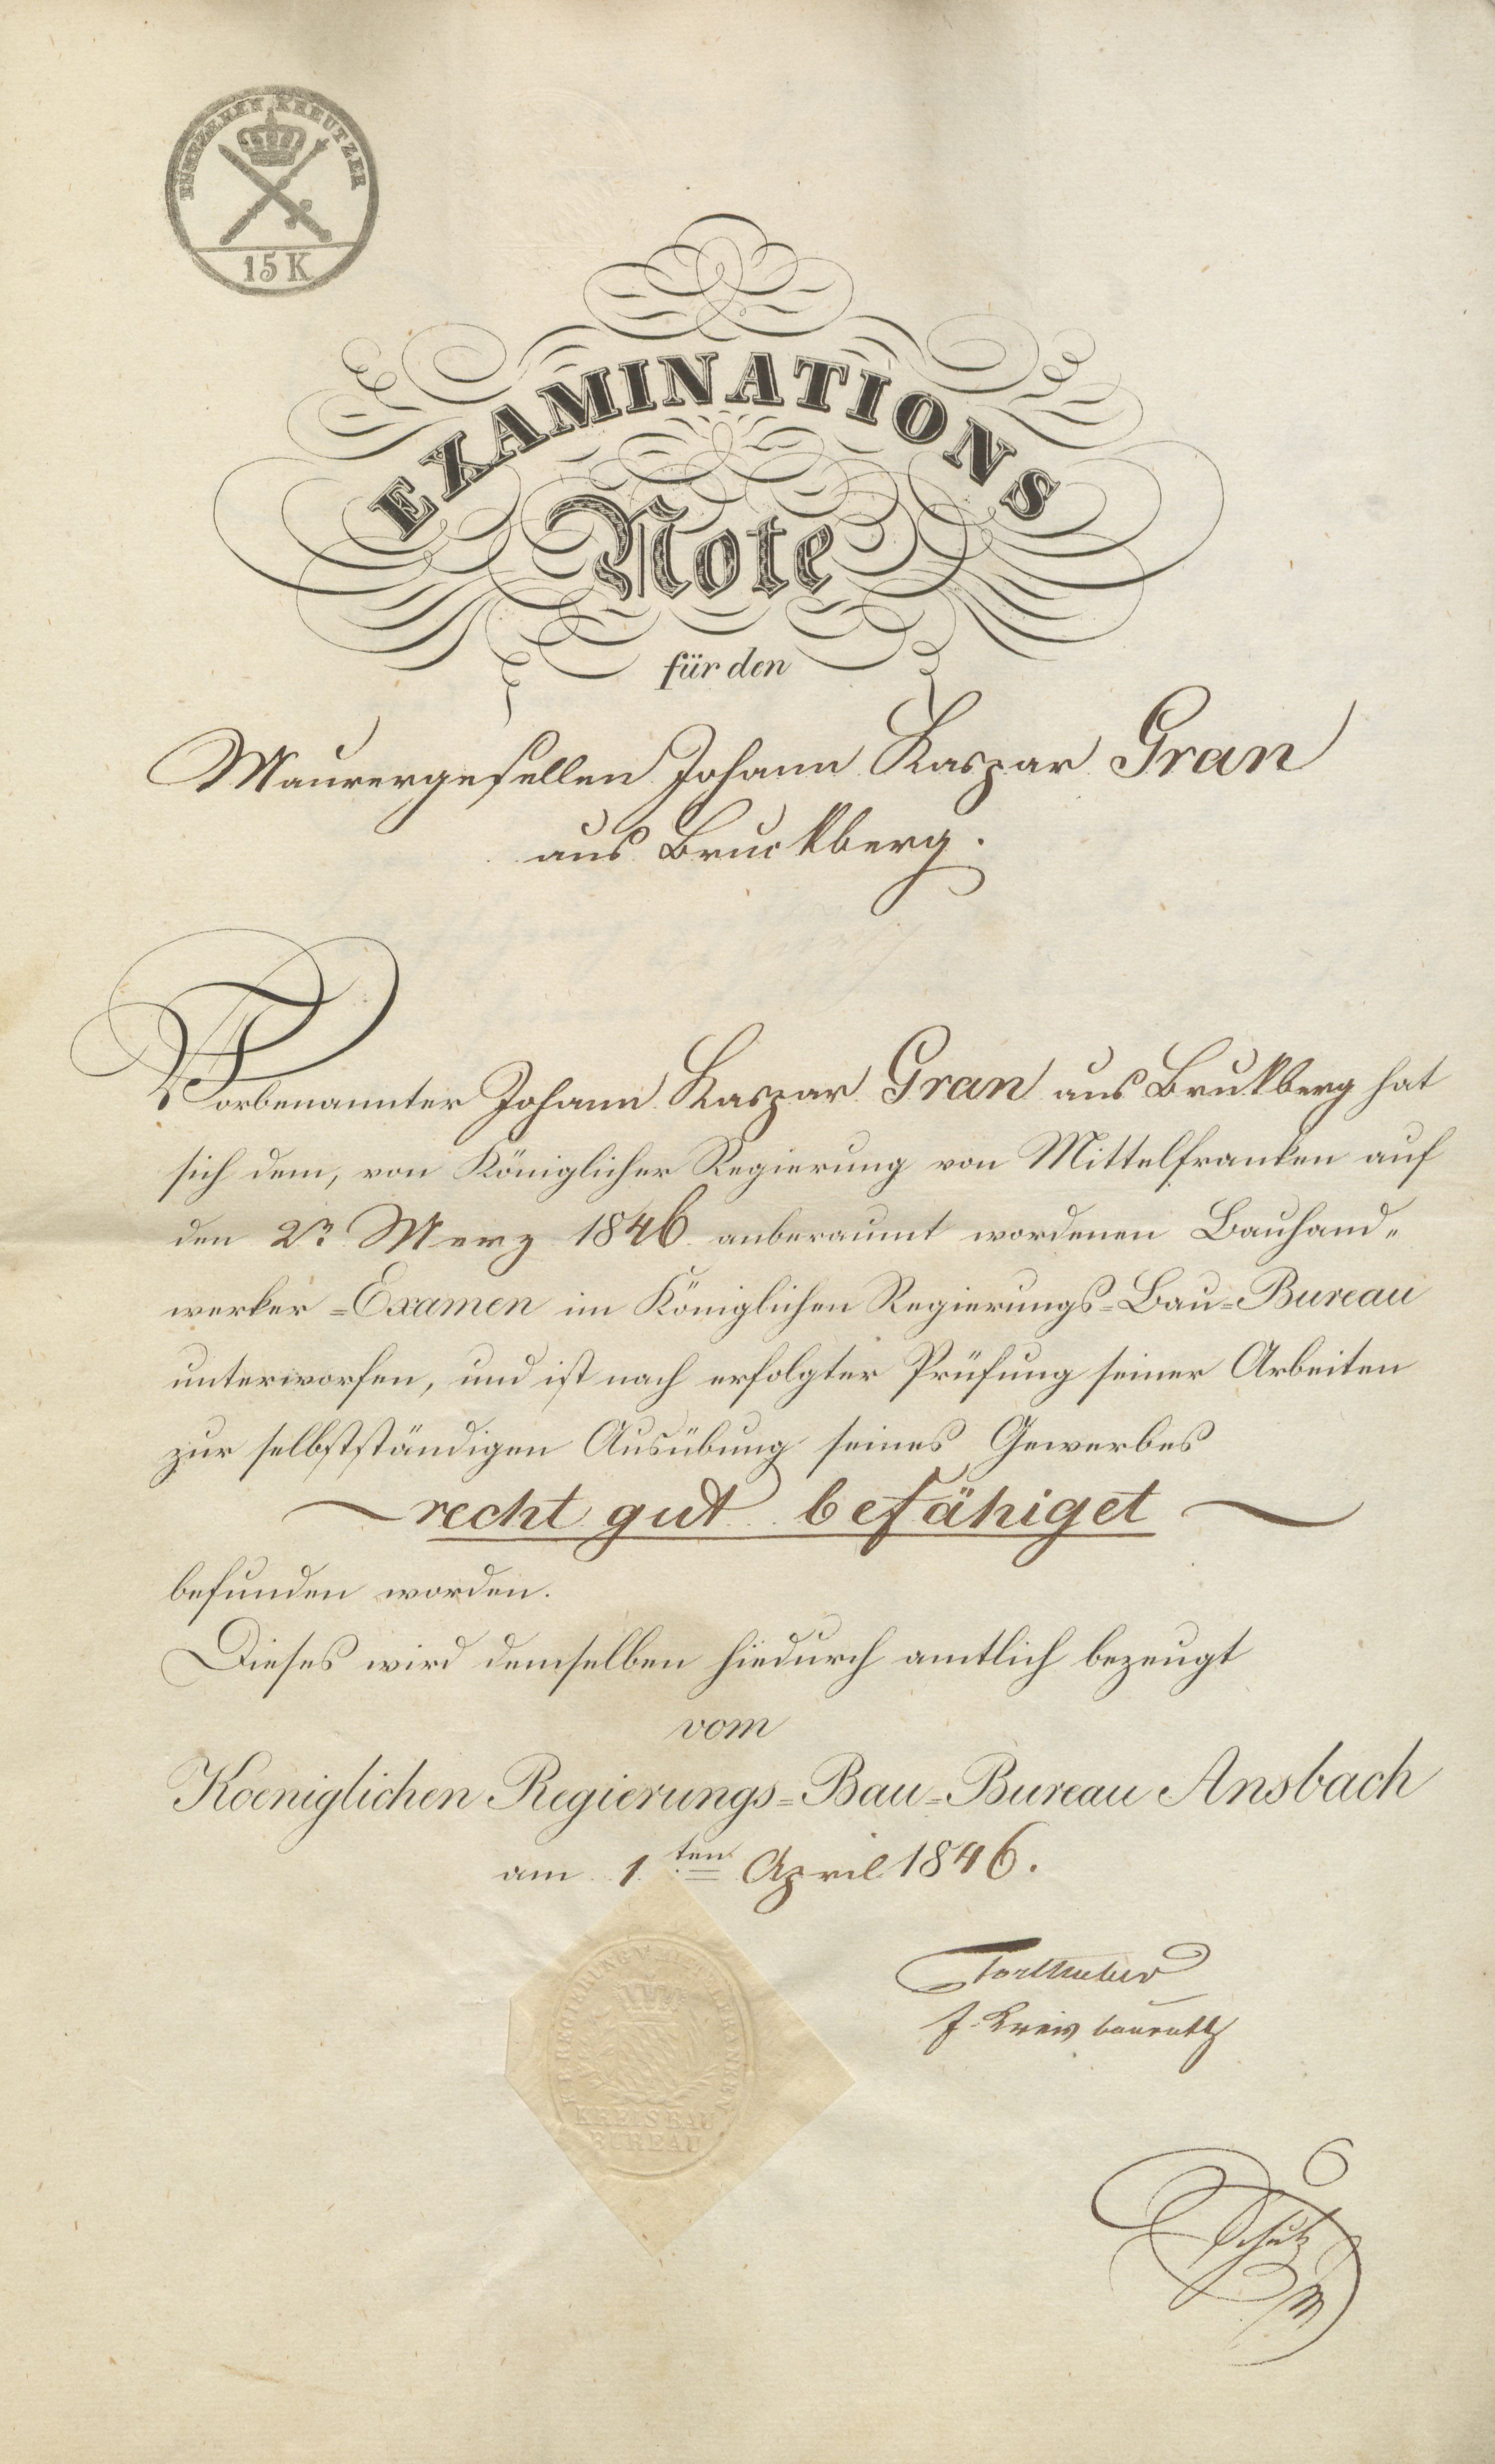 FÜNFZEHEN KREUTZER
15 K
EXAMINATIONS
Note
für den
Maurergesellen Johann Kaspar Gran
aus Bruckberg.
Vorbenannter Johann Kaspar Gran aus Brukberg hat
sich dem, von Königlicher Regierung von Mittelfranken auf
den 2n Merz 1846 anberaumt wordenen Bauhand„
werker=Examen im Königlichen Regierungs=Bau=Bureau
unterworfen, und ist nach erfolgter Prüfung seiner Arbeiten
zur selbstständigen Ausübung seines Gewerbes
recht gut befähiget
befunden worden.
Dieses wird demselben hiedurch amtlich bezeugt
vom
Koeniglichen Regierungs=Bau=Bureau Ansbach
am 1ten April 1846.
K. B. REGIERUNG V. MITTELFRANKEN
KREIS BAU
BUREAU
Kreisbaurath
Schutz